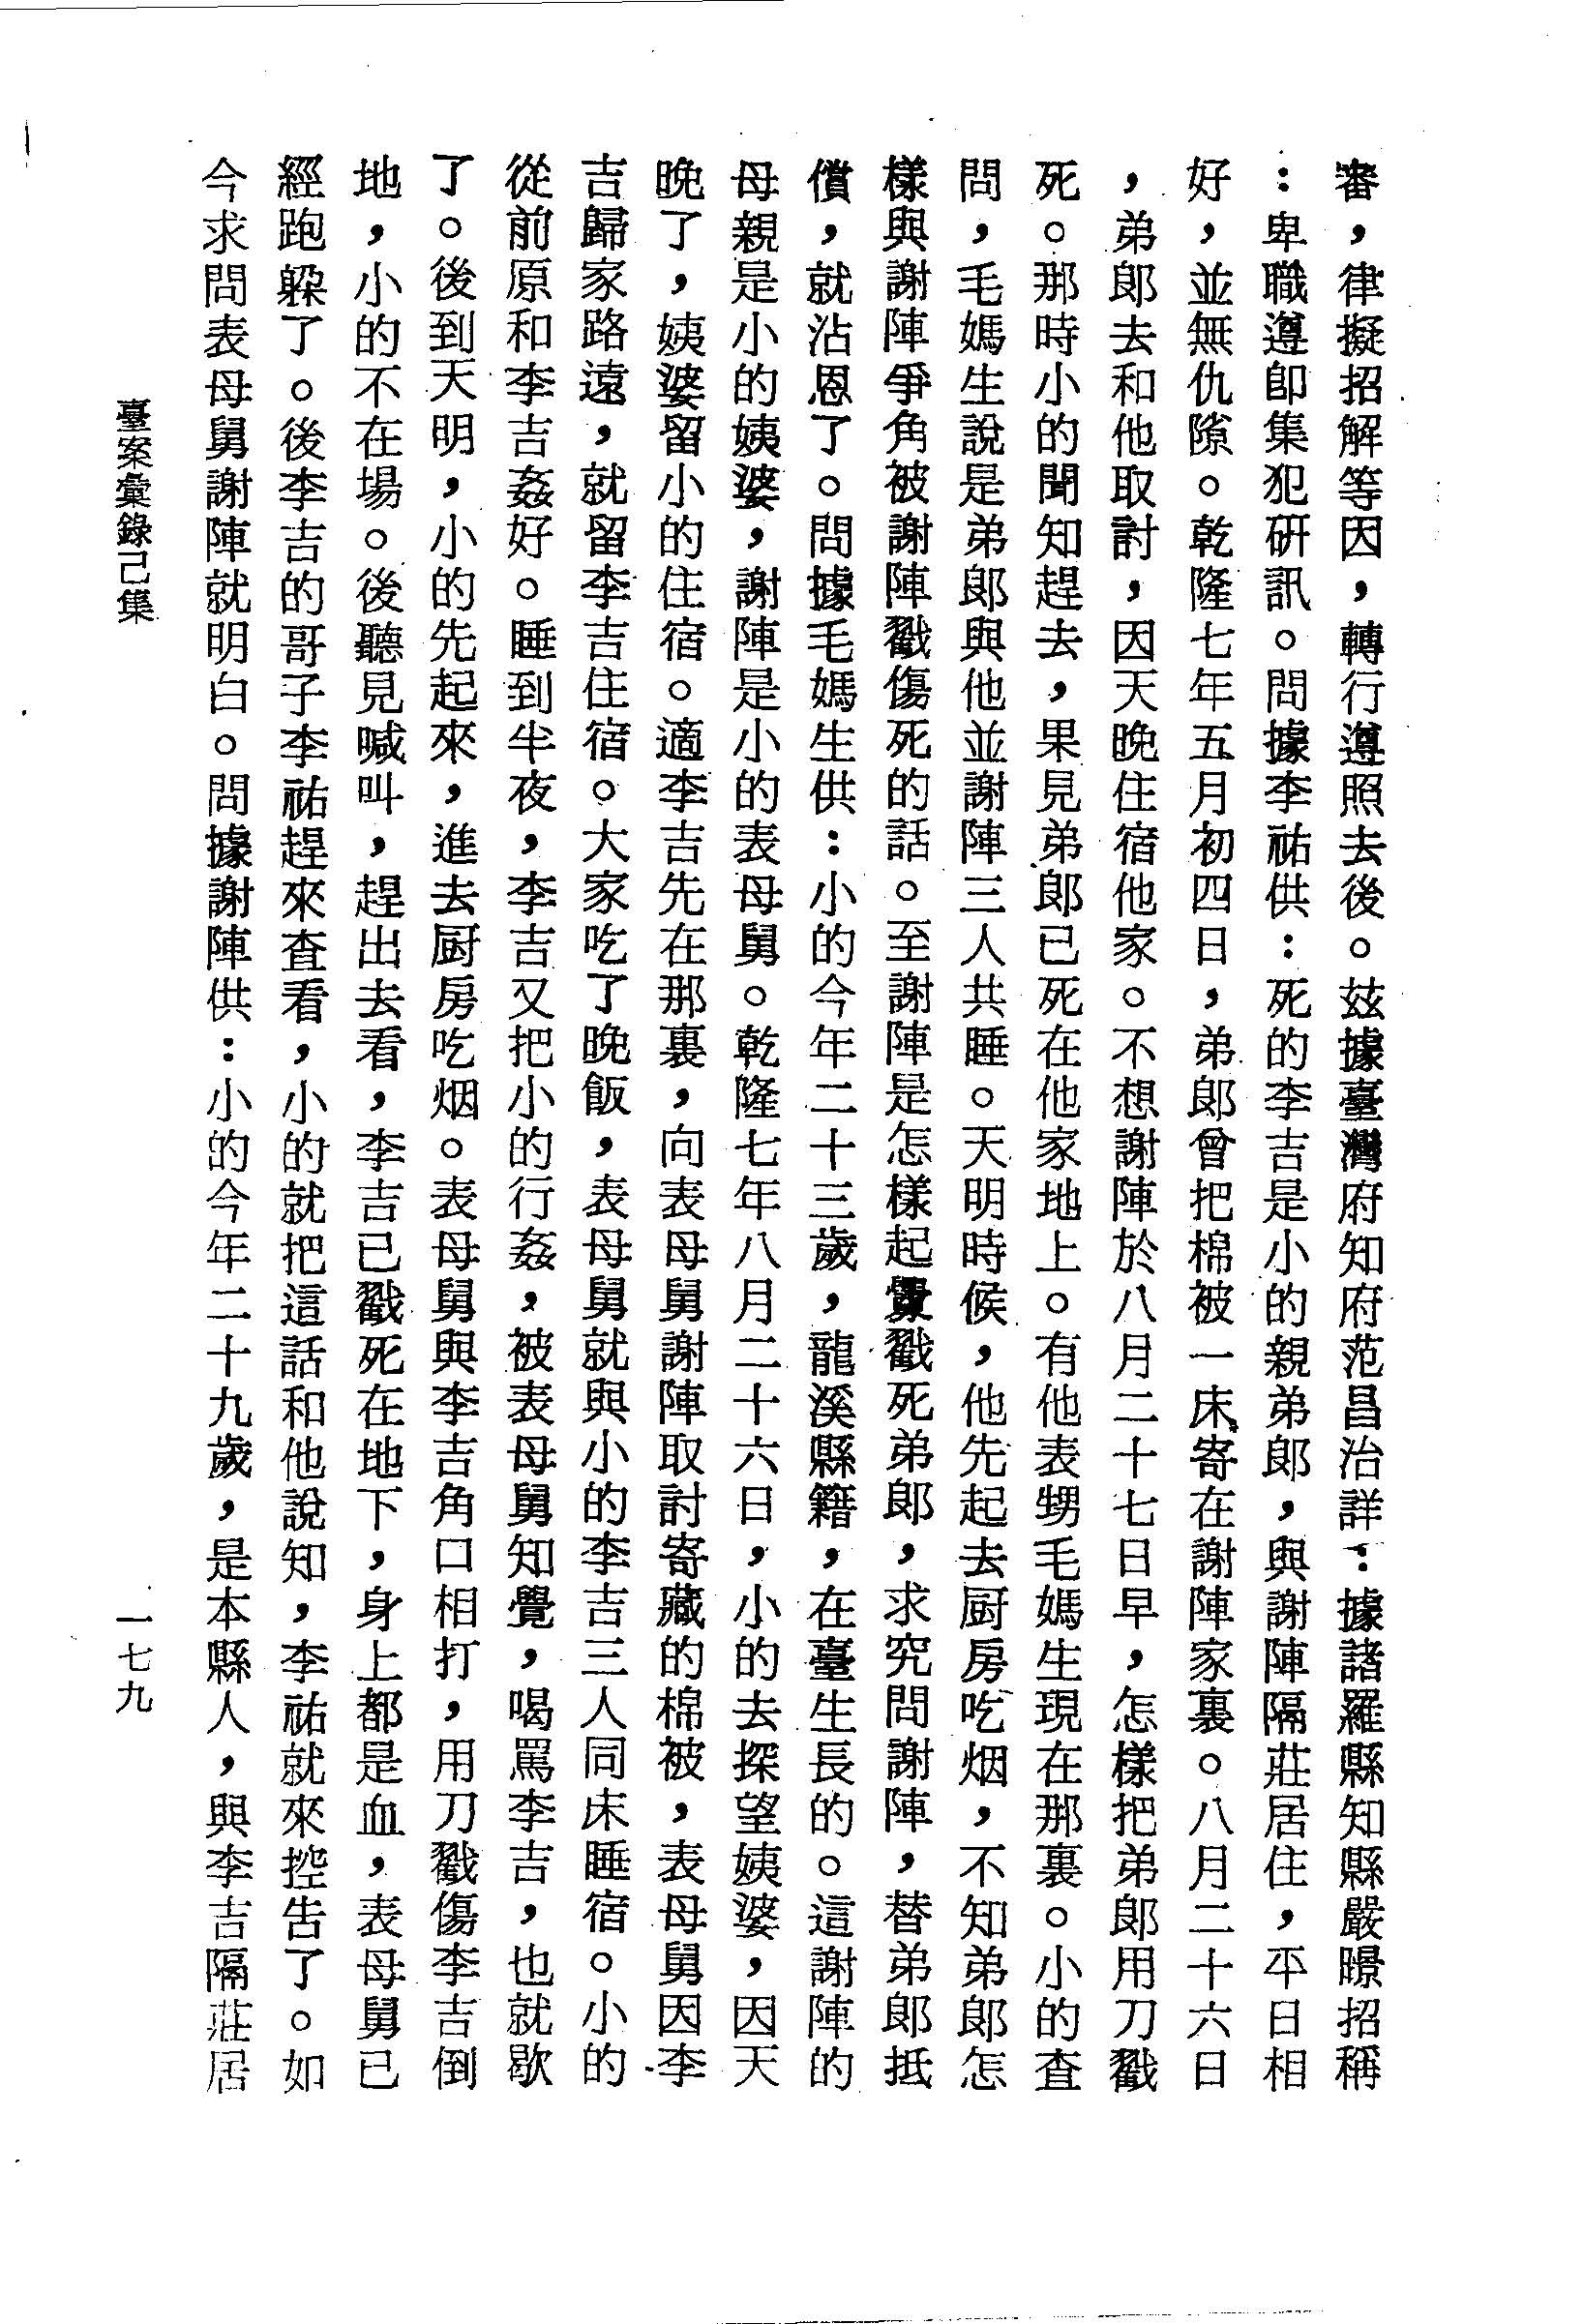 審，律擬招解等因，轉行遵照去後。玆據臺灣府知府范昌治詳：據諸羅縣知縣嚴暻招稱
：卑職遵卽集犯研訊。問據李祐供：死的李吉是小的親弟郞，與謝陣隔莊居住，平日相
好，並無仇隙。乾隆七年五月初四日，弟郞曾把棉被一床寄在謝陣家裏。八月二十六日
，弟郞去和他取討，因天晚住宿他家。不想謝陣於八月二十七日早，怎樣把弟郞用刀戳
死。那時小的聞知趕去，果見弟郞已死在他家地上。有他表甥毛媽生現在那裏。小的查
問，毛媽生說是弟郞與他並謝陣三人共睡。天明時候，他先起去厨房吃烟，不知弟郞怎
樣與謝陣爭角被謝陣戳傷死的話。至謝陣是怎樣起釁戳死弟郞，求究問謝陣，替弟郞抵
償，就沾恩了。問據毛媽生供：小的今年二十三歲，龍溪縣籍，在臺生長的。這謝陣的
母親是小的姨婆，謝陣是小的表母舅。乾隆七年八月二十六日，小的去探望姨婆，因天
晚了，姨婆留小的住宿。適李吉先在那裏，向表母舅謝陣取討寄藏的棉被，表母舅因李
吉歸家路遠，就留李吉住宿。大家吃了晚飯，表母舅就與小的李吉三人同床睡宿。小的
從前原和李吉姦好。睡到半夜，李吉又把小的行姦，被表母舅知覺，喝罵李吉，也就歇
了。後到天明，小的先起來，進去厨房吃烟。表母舅與李吉角口相打，用刀戳傷李吉倒
地，小的不在場。後聽見喊叫，趕出去看，李吉已戳死在地下，身上都是血，表母舅已
經跑躱了。後李吉的哥子李祐趕來查看，小的就把這話和他說知，李祐就來控告了。如
今求問表母舅謝陣就明白。問據謝陣供：小的今年二十九歲，是本縣人，與李吉隔莊居
臺案彙錄己集
一七九